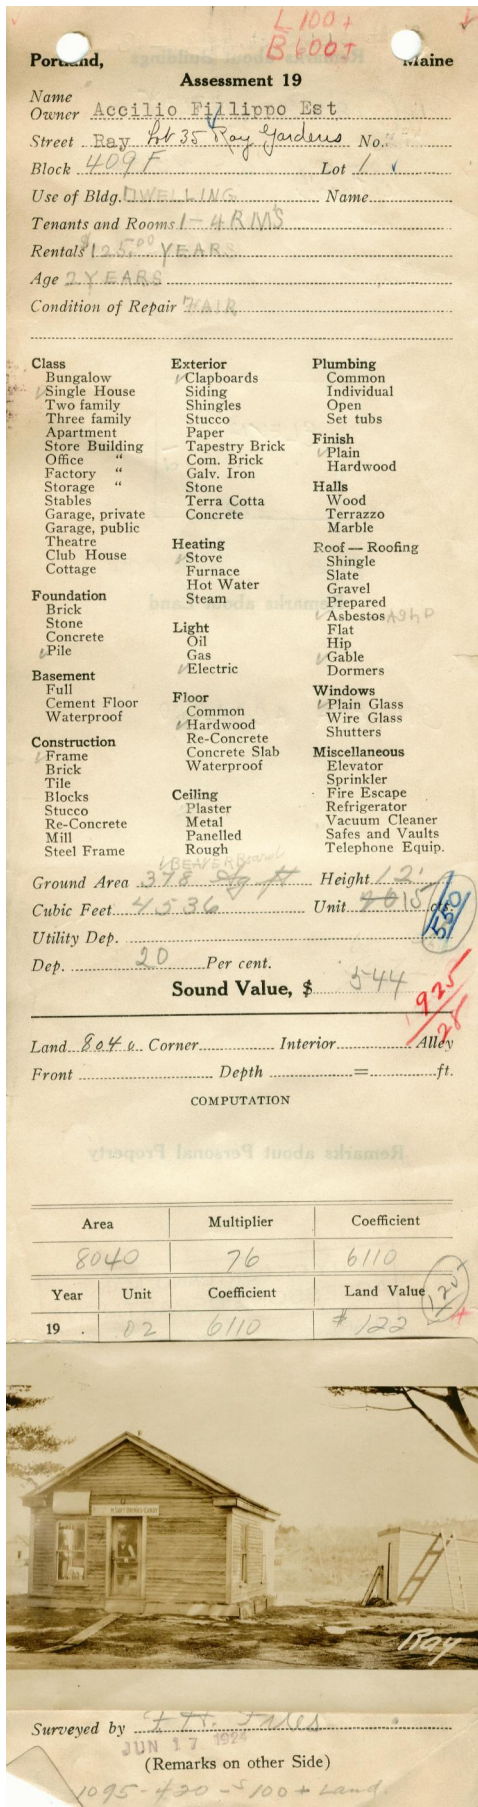 L 100 +
B 600 +
Portland, Maine
Assessment 19
Name
Owner Accilio Fillippo Est
Street Ray Lot 35 Ray Gardens No.
Block 409 F Lot 1
Use of Bldg. DWELLING Name
Tenants and Rooms 1 - 4 RMS
Rentals $125.00 YEARS
Age 2 YEARS
Condition of Repair FAIR
Class
Bungalow
Single House
Two family
Three family
Apartment
Store Building
Office "
Factory "
Storage "
Stables
Garage, private
Garage, public
Theatre
Club House
Cottage
Foundation
Brick
Stone
Concrete
Pile
Basement
Full
Cement Floor
Waterproof
Construction
Frame
Brick
Tile
Blocks
Stucco
Re-Concrete
Mill
Steel Frame
Exterior
Clapboards
Siding
Shingles
Stucco
Paper
Tapestry Brick
Com. Brick
Galv. Iron
Stone
Terra Cotta
Concrete
Heating
Stove
Furnace
Hot Water
Steam
Light
Oil
Gas
Electric
Floor
Common
Hardwood
Re-Concrete
Concrete Slab
Waterproof
Ceiling
Plaster
Metal
Panelled
Rough
BEAVER Board
Plumbing
Common
Individual
Open
Set tubs
Finish
Plain
Hardwood
Halls
Wood
Terrazzo
Marble
Roof — Roofing
Shingle
Slate
Gravel
Prepared
Asbestos
Flat
Hip
Gable
Dormers
Windows
Plain Glass
Wire Glass
Shutters
Miscellaneous
Elevator
Sprinkler
Fire Escape
Refrigerator
Vacuum Cleaner
Safes and Vaults
Telephone Equip.
Ground Area 378 Sq ft Height 12'
Cubic Feet 4536 Unit 15 cts.
550
Utility Dep.
Dep. 20 Per cent.
Sound Value, $ 544
1925/28
Land 8040 Corner Interior Alley
Front Depth = ft.
COMPUTATION
Area Multiplier Coefficient
8040 76 6110
Year Unit Coefficient Land Value
120+
19 . 02 6110 $ 122
SOFT DRINKS CANDY
Ray
Surveyed by
JUN 17 1924
(Remarks on other Side)
1095 - 420 - $100 + Land.